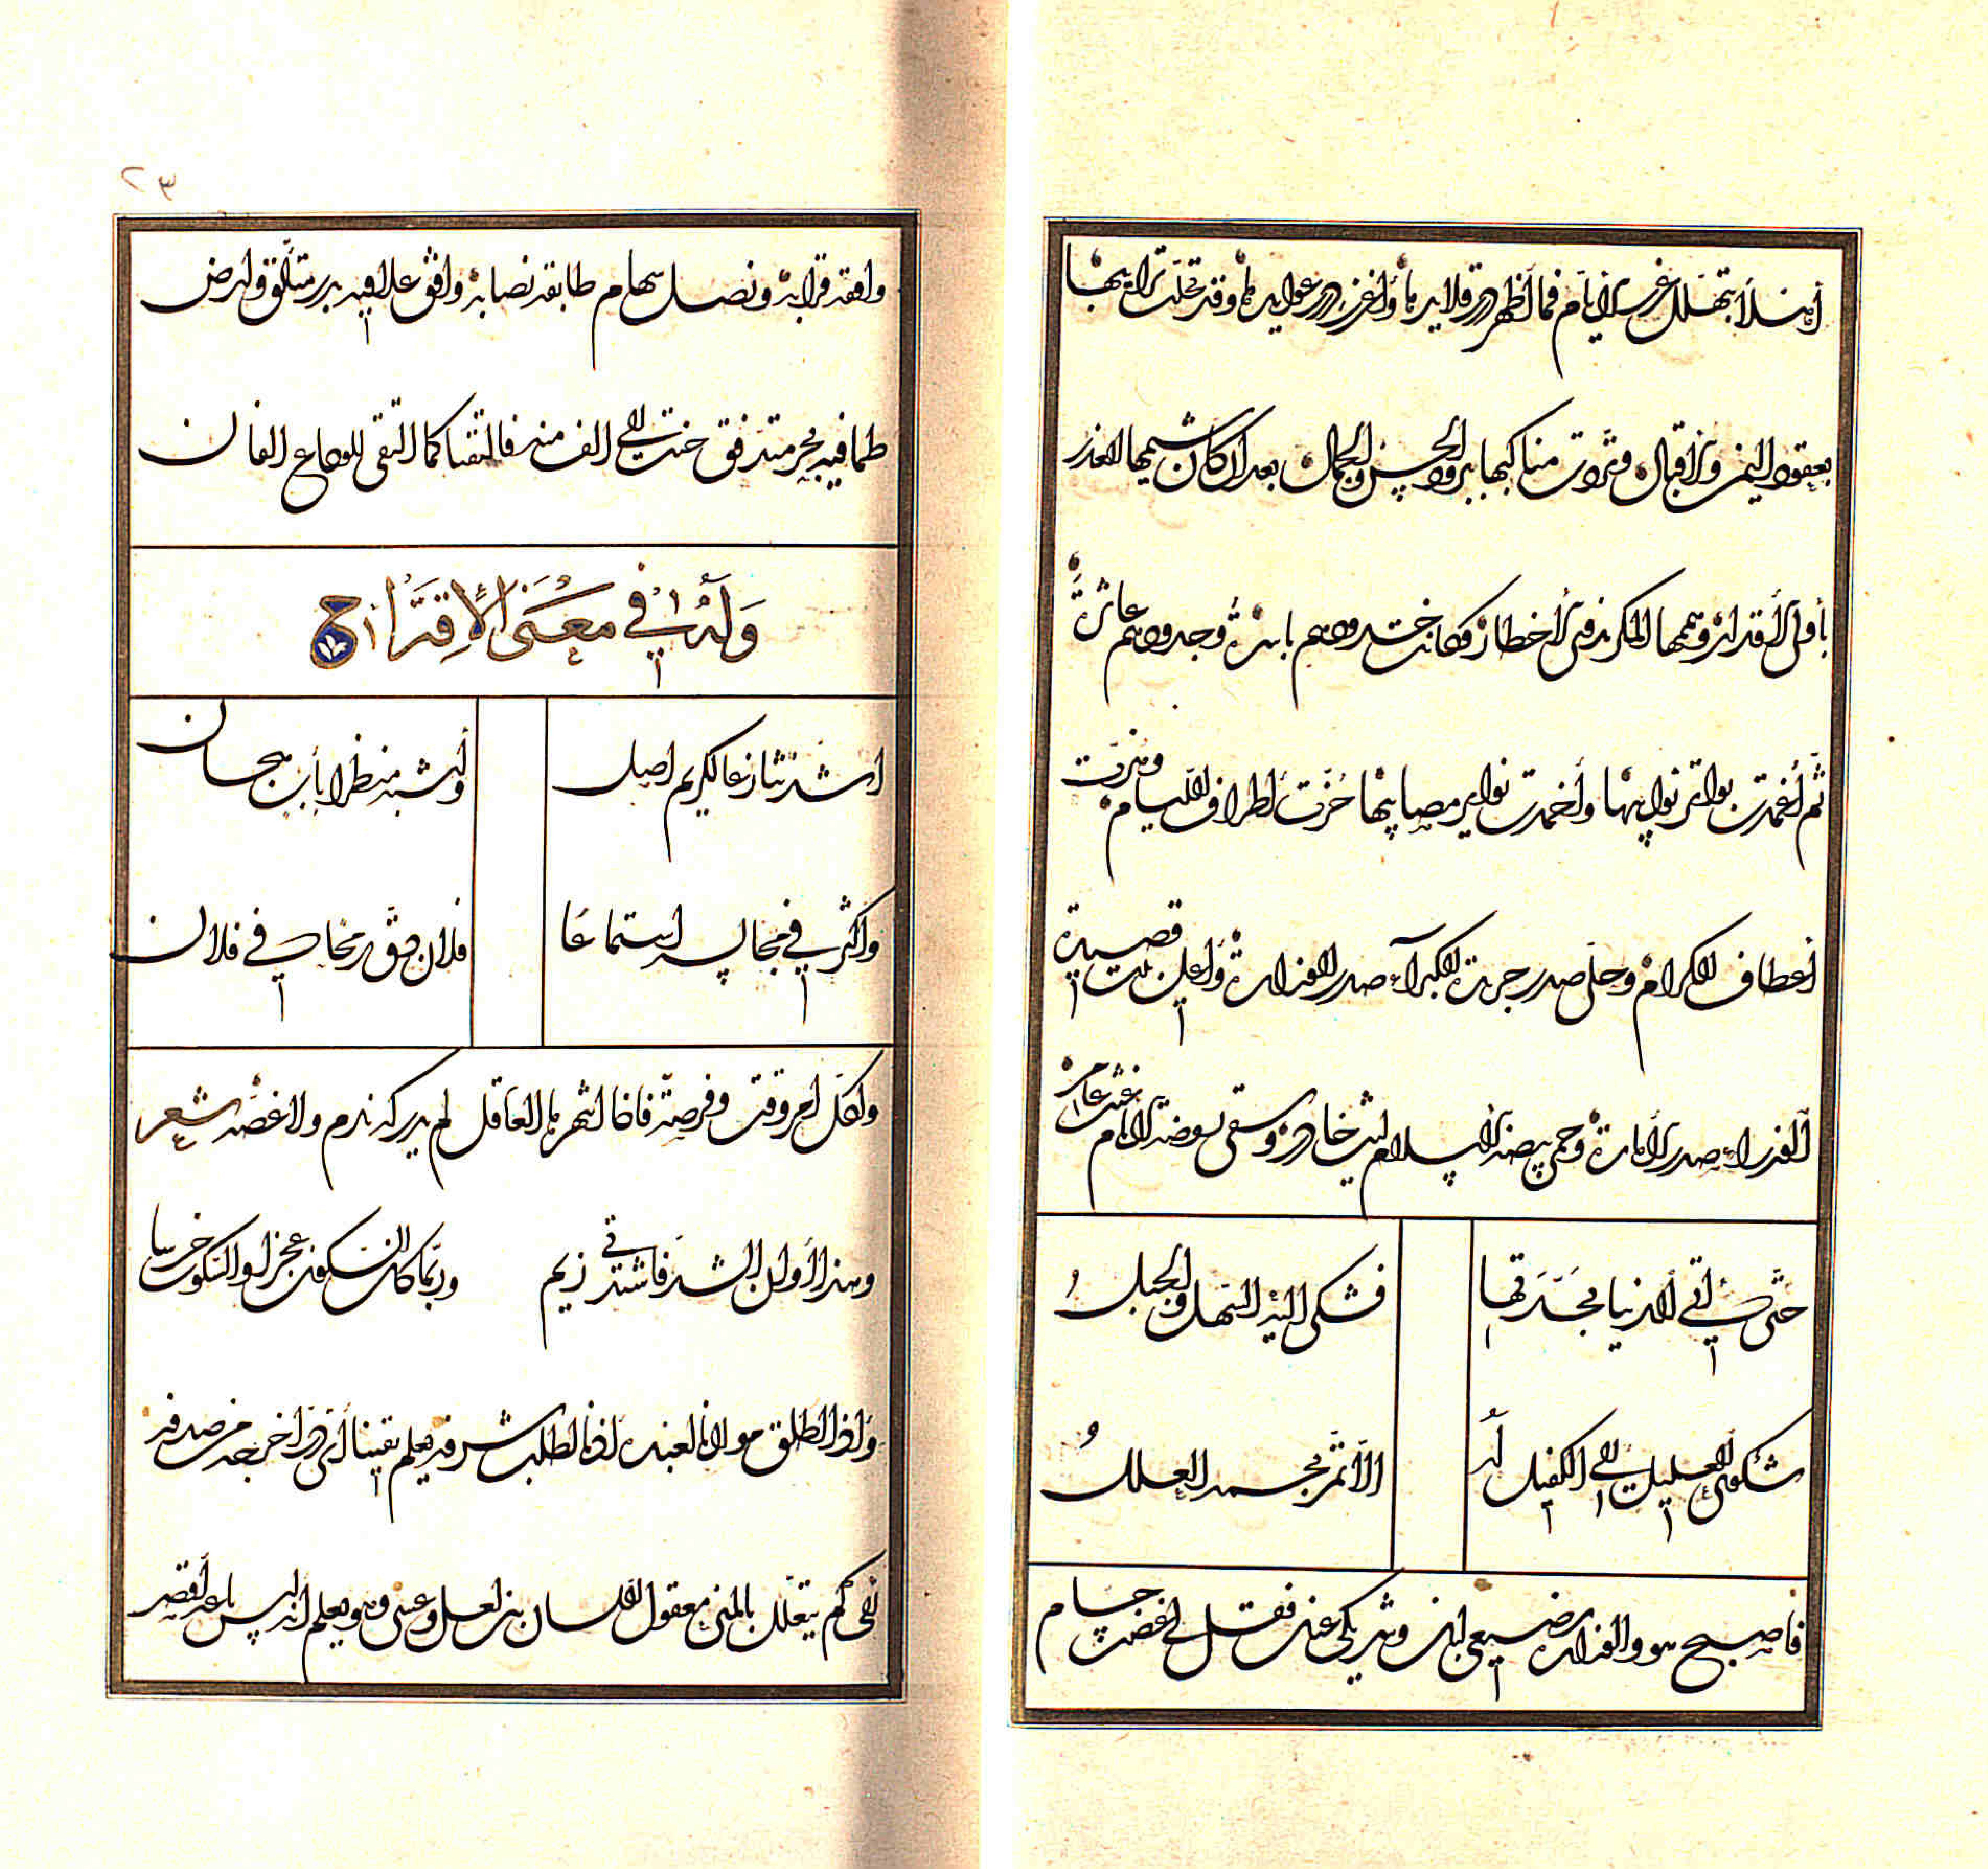 أهلا بتهلل غرر الأيام فما أظهر درر قلايدها وأغزر درر عوايدها وقد تحلت ترايبها
بعقود اليمن والإقبال وتردت مناكبها برود الحسن والجمال بعد أن كان شيمها الغدر
بأولى الأقدار وهمها المكر بذوي الأخطار وكانت خدودهم بائرة وجدودهم عاثرة
ثم أغمدت بواتر نوايبها وأخمدت نواير مصايبها حزت أطراف الليام وهزت
أعطاف الكرام وحلى صدر جريدة الكبراء صدر الوزارة وأعلى بيت قصيدة
الوزراء صدر الأمارة وحمى بيضة الإسلام ليث خادر وسقى روضة الأنام غيث غامر
حتى أتى الدنيا مجددها
فشكى إليه السهل والجبل
شكوى العليل إلى الكفيل له
ألا تمر بجسمه العلل
فأصبح هو والوزارة رضيعي لبان وشريكي عنان فقل في غضب حسام
وافقه قرابه ونصل سهام طابقه نصابه وافق علا فيه بدر متألق وأرض
طما فيه بحر متدفق حنت إلى الف منه فالتقتا كما التقى للوداع الفان
وله في معنى الاقتراح
أشد تنازعا لكريم أصل
وأشبه منظرا بأب هجان
وأكثر في مجالسه استماعا
فلان دق رمحا في فلان
ولكل أمر وقت وفرصة فإذا انتهزها العاقل لم يدركه ندم ولا غصة شعر
وهذا أوان الشد فاشتدي زيم
وربما كان السكون عجزا والسكوت خرسا
وإذا أطلق مولانا لعبده إذنا لطلب شرفه يعلم يقينا أي در أخرجه من صدفه
إلى كم يتعلل بالمنى معقول اللسان بين لعل وعسى وهو يعلم أنه ليس باعه أقصر
٢٣